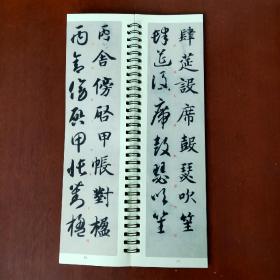 肆筵設席鼓瑟吹笙
肆筵設席鼓瑟吹笙
丙舍傍啓甲帳對楹
丙舍傍啓甲帳對楹